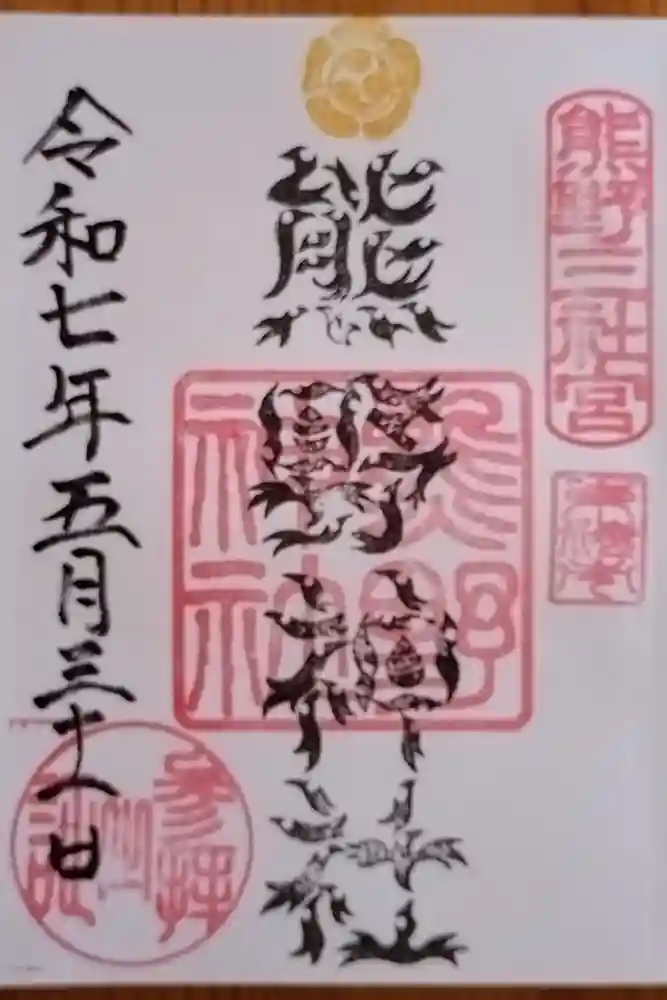 熊野三社宮
熊野神社
熊野神社
令和七年五月三十一日
参拝之証